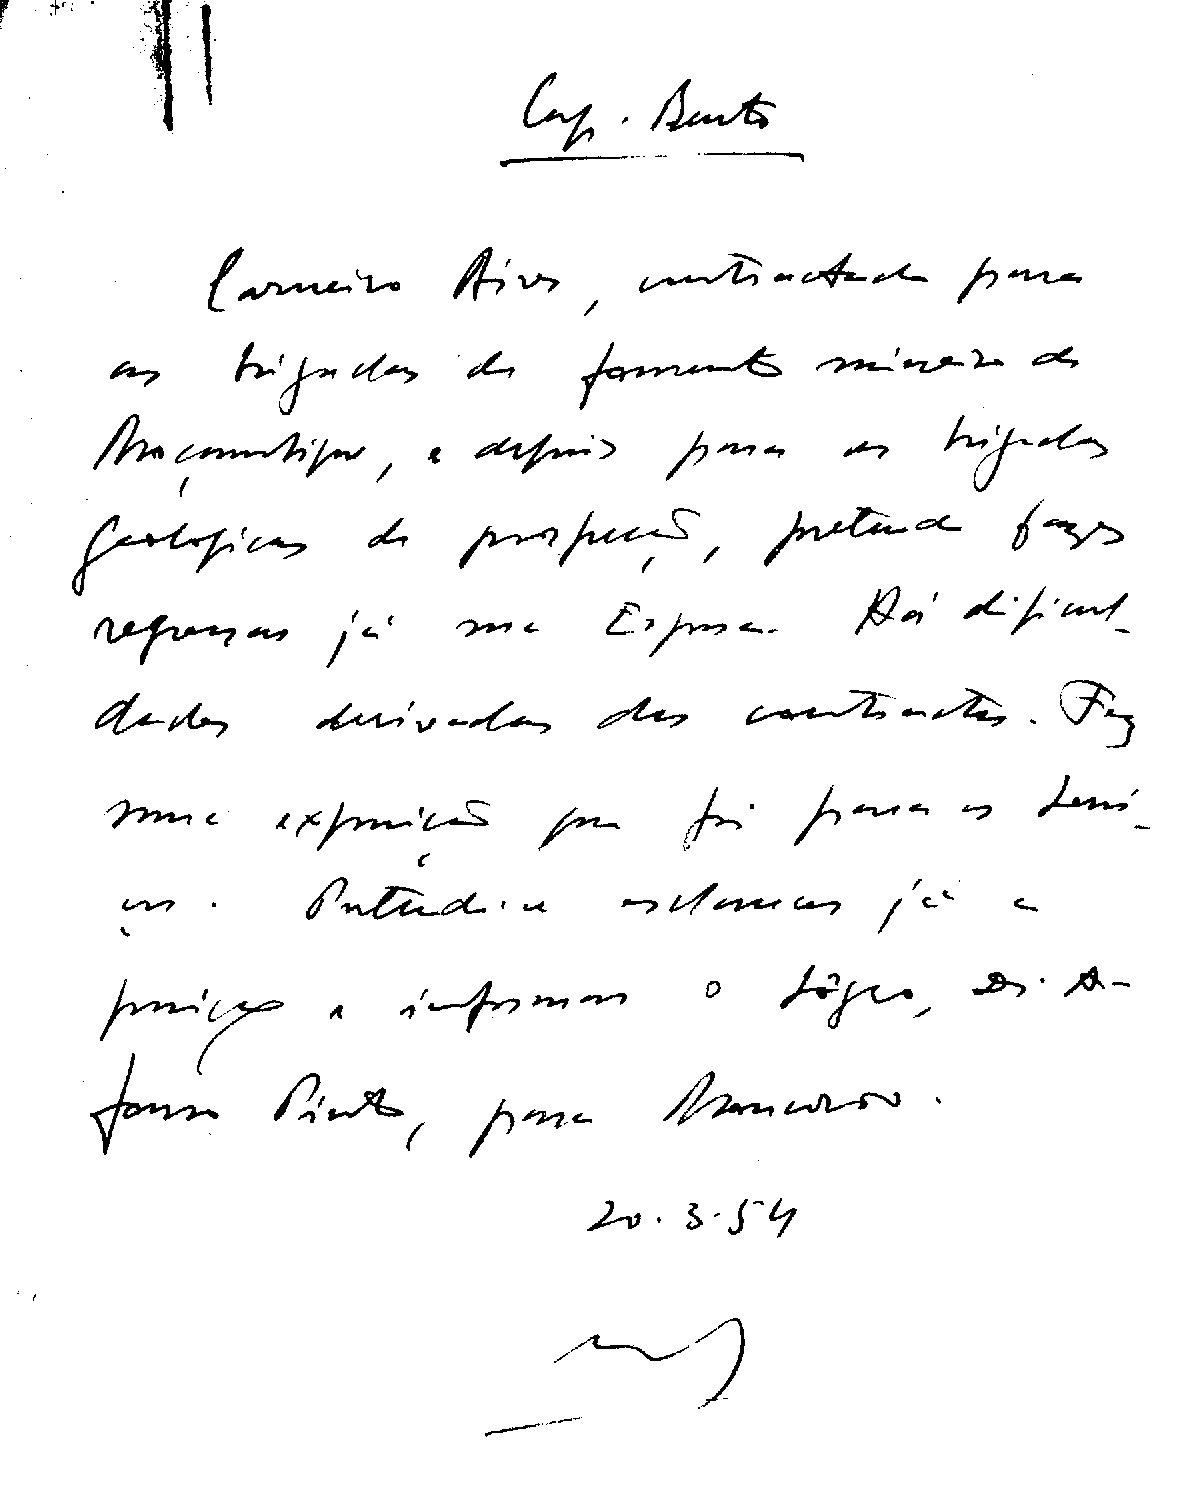 Cap. Bento
Carneiro Aires, contractado para
as brigadas de fomento mineiro de
Moçambique, e depois para as brigadas
geologicas de prospecção, pretende fazer
regressar já sua Esposa. Há dificul-
dades derivadas dos contractos. Fez
uma exposição que foi para os Servi-
ços. Pretende-se esclarecer já a
posição e informar o Sôgro, Dr. A-
fonso Pinto, para Moncorvo.
20.3.54